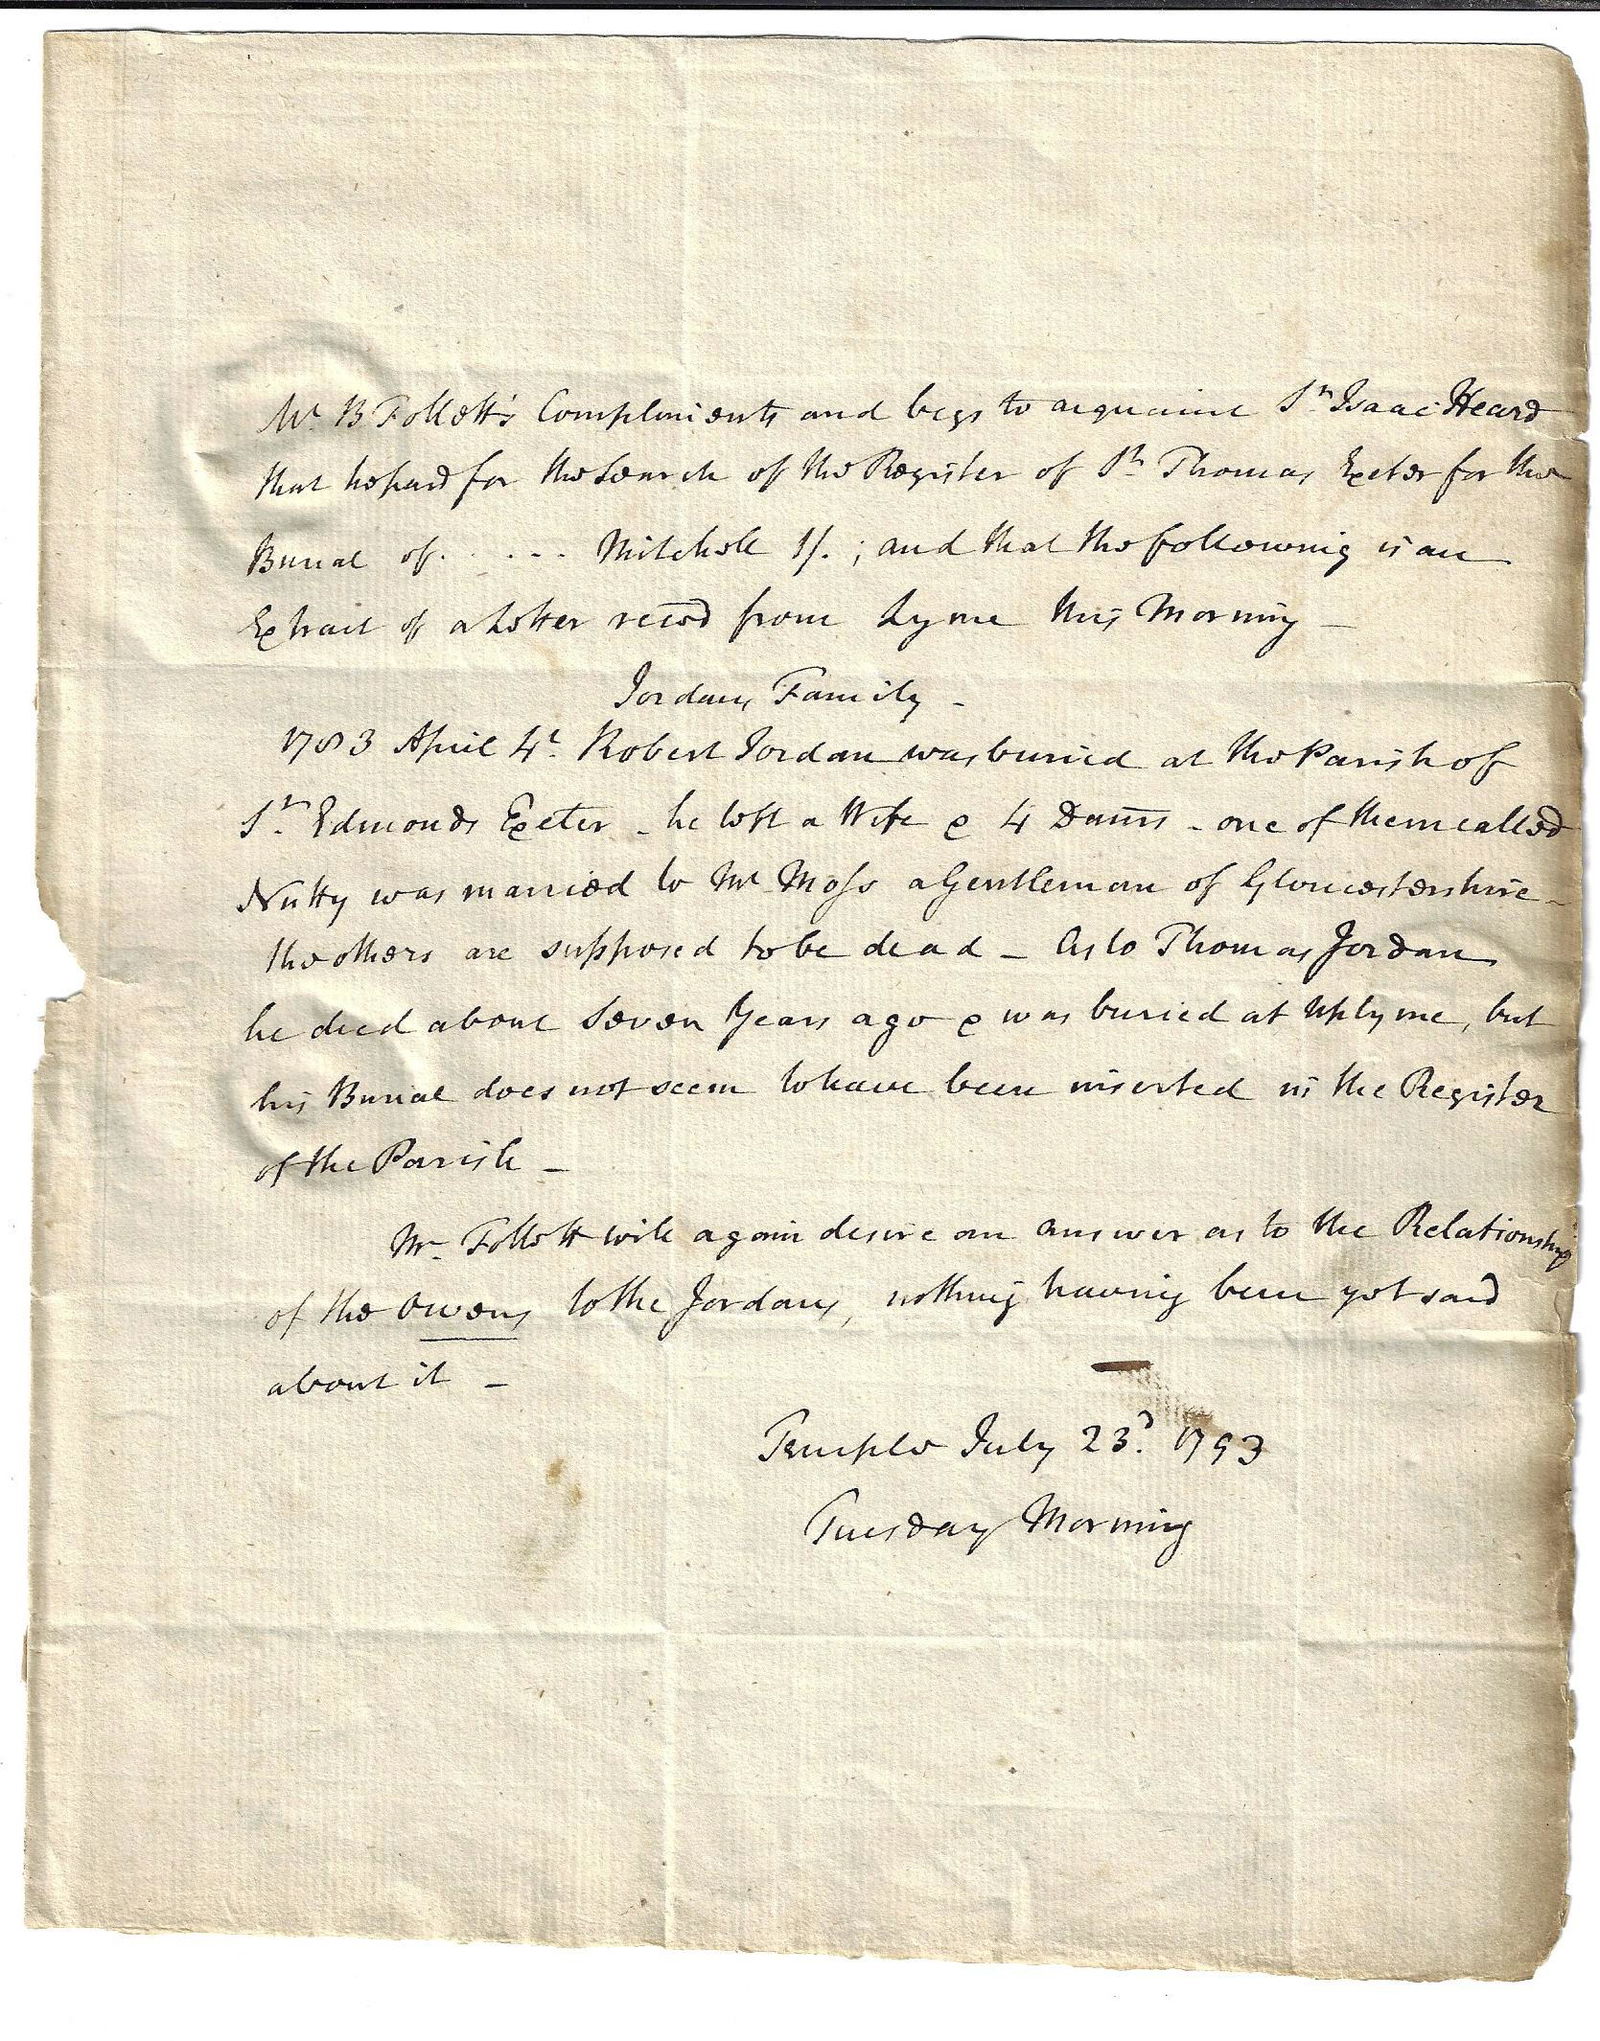 Mr. B Follett's Compliments and begs to acquaint Sr. Isaac Heard
that he paid for the Search of the Register of St. Thomas Exeter for the
Burial of . . . . . Mitchell 1/. ; and that the following is an
Extract of a Letter recēd from Lyme this Morning —
Jordans Family —
1783 April 4t. Robert Jordan was buried at the Parish of
St. Edmonds Exeter - he left a Wife & 4 Daūrs - one of them called
Nutty was married to Mr Moss a Gentleman of Gloucestershire -
the others are supposed to be dead - As to Thomas Jordan
he died about Seven Years ago & was buried at Uplyme, but
his Burial does not seem to have been inserted in the Register
of the Parish —
Mr Follett will again desire an answer as to the Relationship
of the Owens to the Jordans, nothing having been yet said
about it —
Temple July 23d. 1793
Tuesday Morning